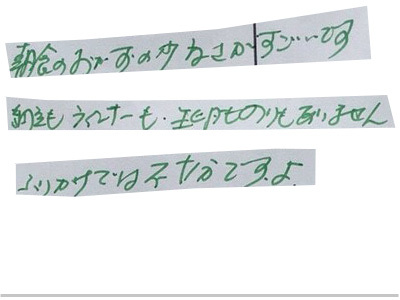 朝食のおかずの少なさがすごいです
納豆も ウインナーも ものりもありません
ふりかけでは不十分ですよ